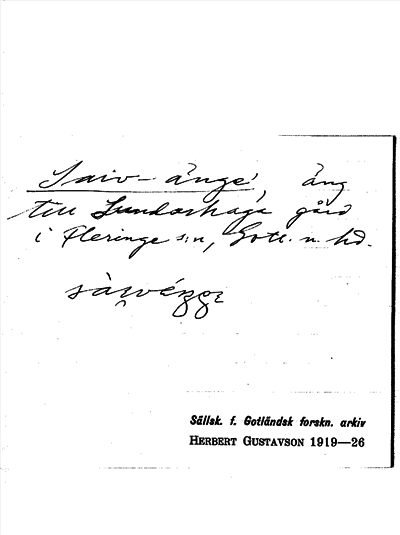 Saiv-änge, äng
till Sundarhage gård
i Fleringe s:n, Gotl. n. hd.
Sällsk. f. Gotländsk forskn. arkiv
HERBERT GUSTAVSON 1919—26